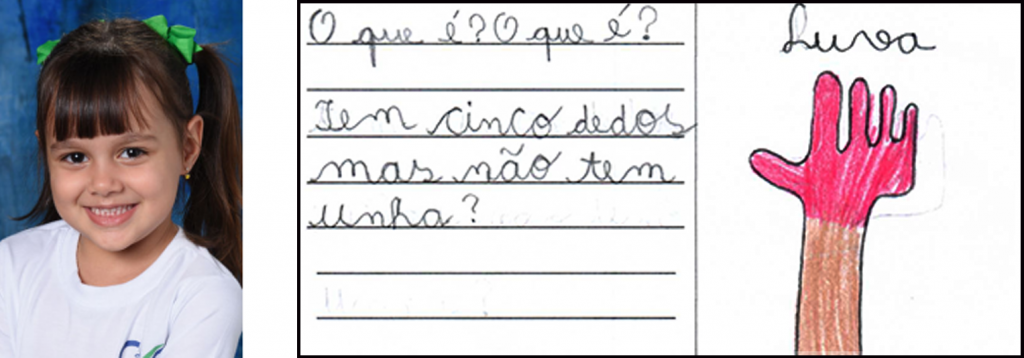 O que é? O que é?
Tem cinco dedos
mas não tem
unha?
Luva